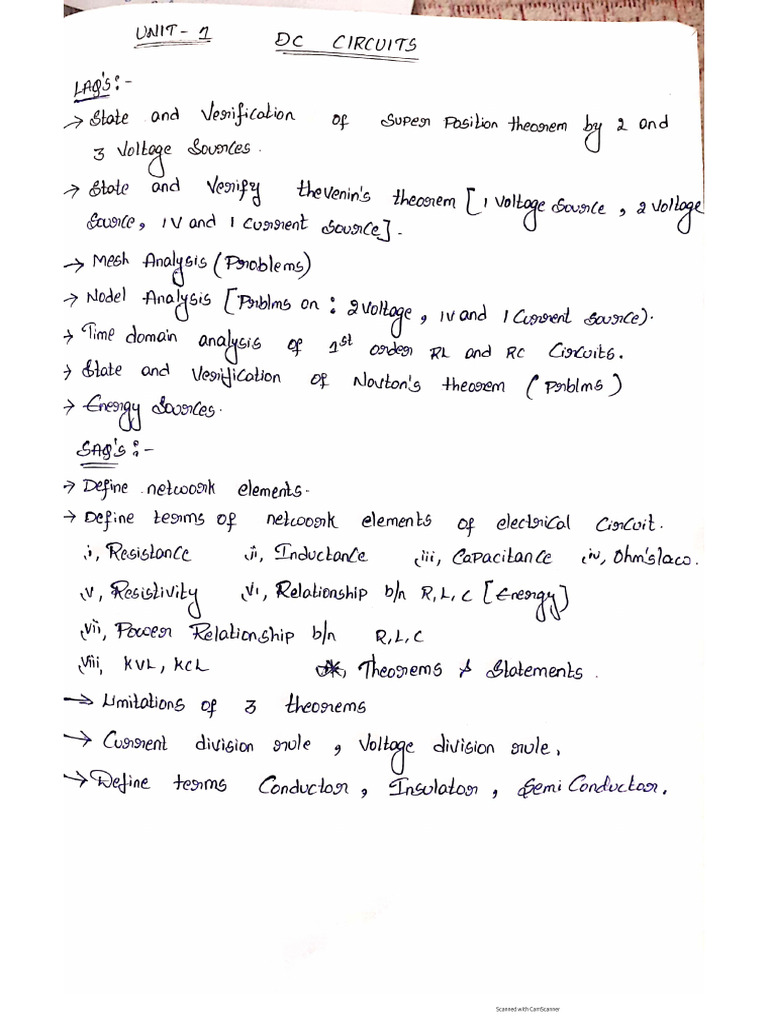 UNIT - 1 DC CIRCUITS
LAQ's :-
→ State and Verification of Super Position theorem by 2 and
3 Voltage Sources.
→ State and Verify thevenin's theorem [1 Voltage Source, 2 Voltage
Source, 1V and 1 Current Source].
→ Mesh Analysis (Problems)
→ Nodel Analysis [Prblms on : 2 Voltage, 1V and 1 Current Source).
→ Time domain analysis of 1st order RL and RC Circuits.
→ State and Verification of Nourton's theorem (Prblms)
→ Energy Sources.
SAQ's :-
→ Define network elements.
→ Define terms of network elements of electrical Circuit.
i, Resistance ii, Inductance iii, Capacitance iv, Ohm's law.
v, Resistivity vi, Relationship b/n R, L, C [Energy]
vii, Power Relationship b/n R, L, C
viii, KVL, KCL ix, Theorems & Statements.
→ Limitations of 3 theorems
→ Current division rule, Voltage division rule,
→ Define terms Conductor, Insulator, Semi Conductor.
Scanned with CamScanner